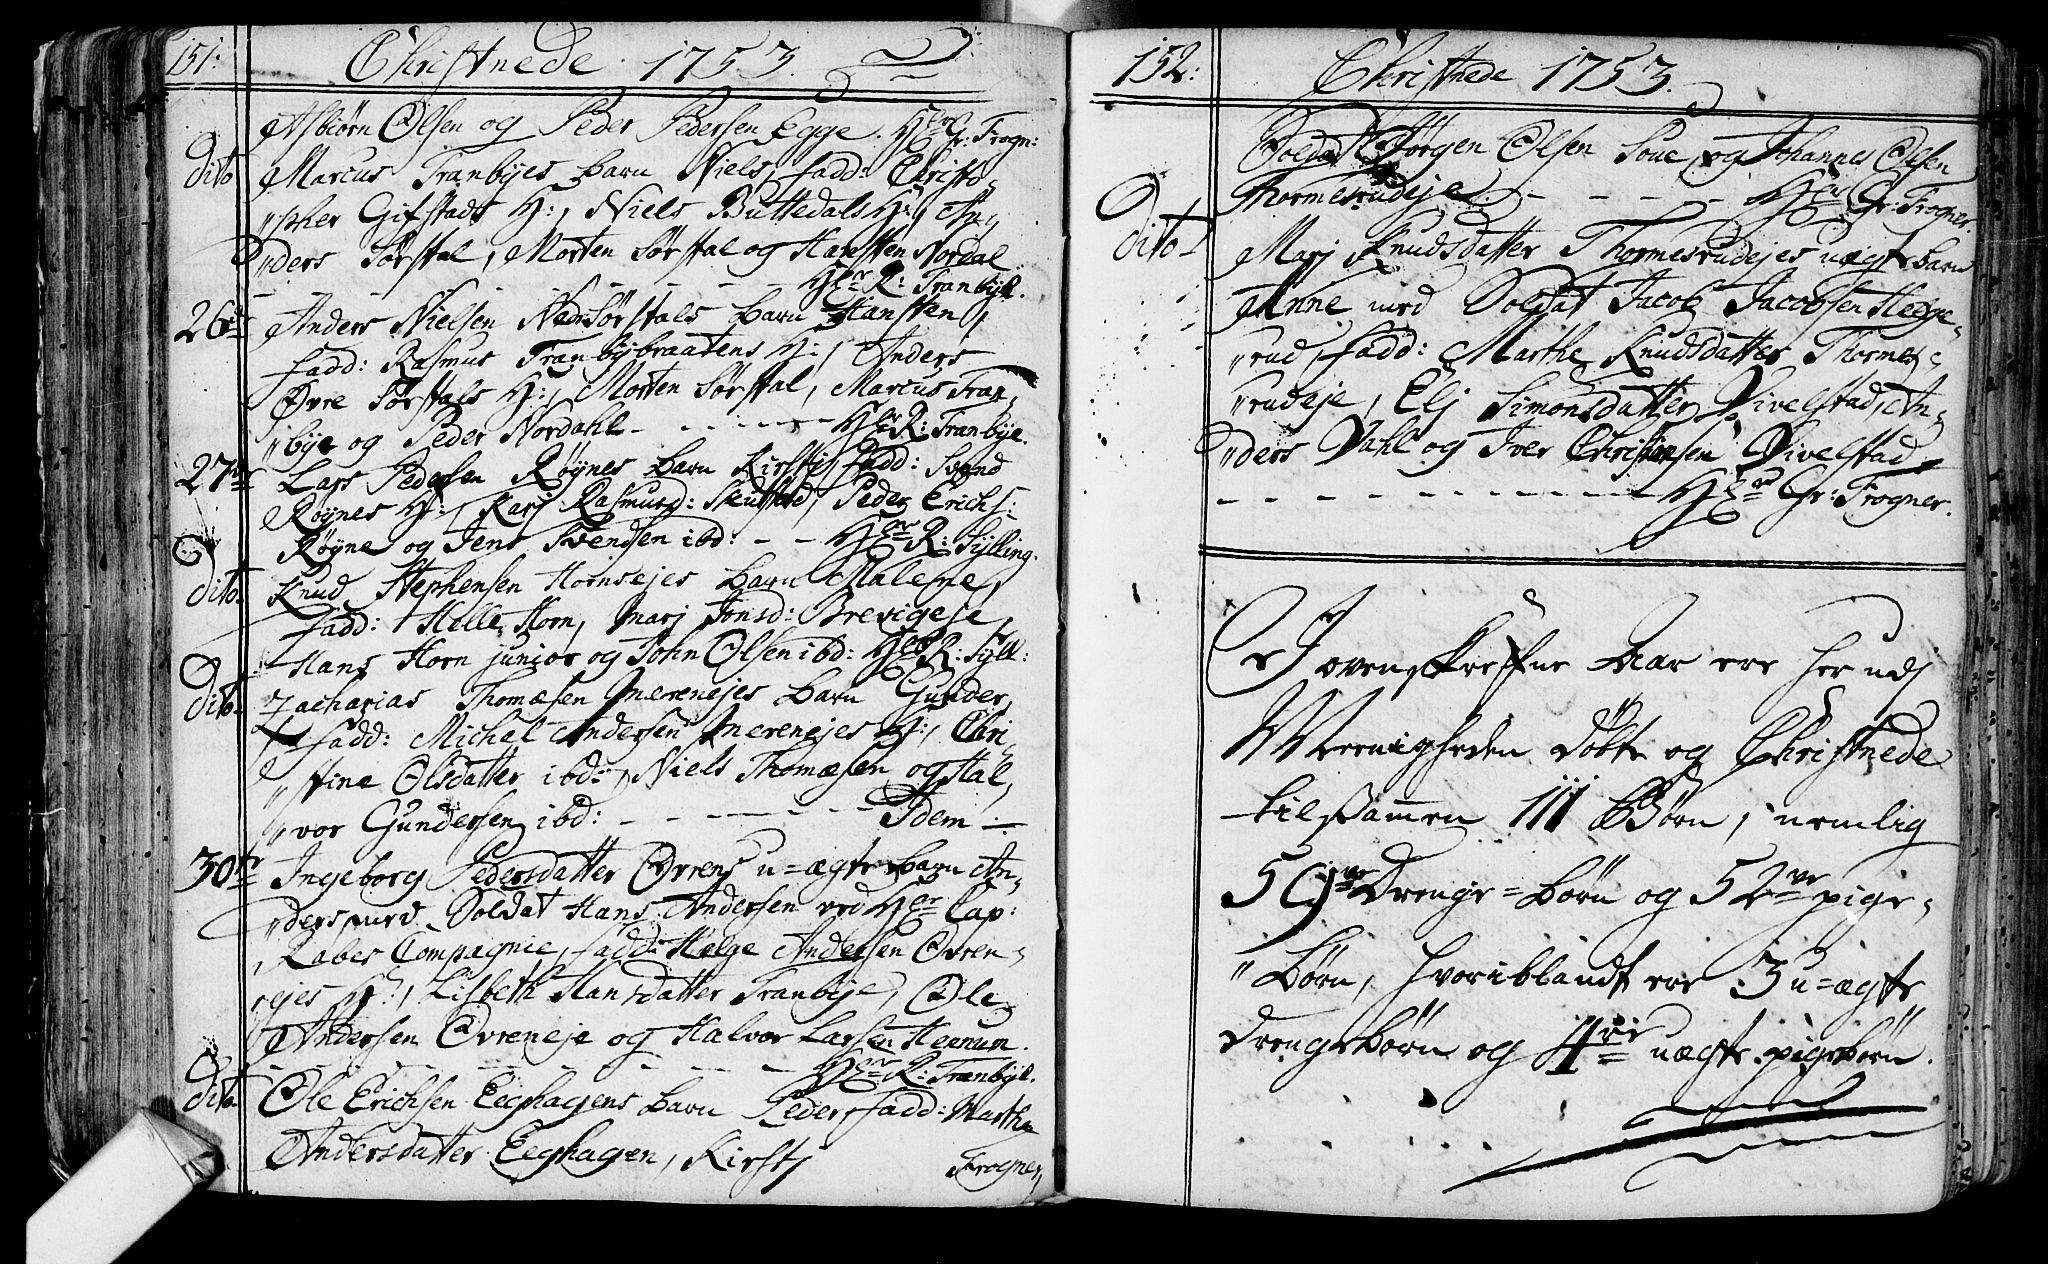 151:
Christnede 1753.
Asbiørn Olsen og Peder Pedersen Egge. Hr Gr: Frogn:
dito Marcus Tranbyes barn Niels, fadd: Christo-
„pher Gifstads H:, Niels Buttedals H:, An-
„ders Sørstal, Morten Sørstal og Hansten Nordal
- - - - - - - - Hr R: Tranbye.
26de Anders Nielsen Nedr Sørstals barn Hansten,
fadd: Rasmus Tranbybraatens H:, Anders
Øvre Sørstals H:, Morten Sørstal, Marcus Tran-
„bye og Peder Nordahl - - - - - Hr R: Tranbye.
27de Lars Pedersen Røynes barn Kirsti, fadd: Svend
Røynes H:, Karj Rasmusd: Skustad, Peder Erichs:
Røyne og Jens Svendsen ibd: - - Hr R: Sylling.
dito Knud Stephensen Hornsejes barn Malene,
fadd: Helle Horn, Marj Jonsd: Brevigeje,
Hans Horn junior og John Olsen ibd: Hr R: Syll:
dito Zacharias Thomæsen Merenejes barn Gunder,
fadd: Michel Andersen Merenejes H:, Chri-
„stine Olsdatter ibd:, Niels Thomæsen og Hal-
„vor Gundersen ibd: - - - - - - Idem
30te Ingeborg Pedersdatter Ovrens u=ægte barn An-
„ders med Soldat Hans Andersen ved Hr Cap:
Rabes Compagnie, fadd: Helge Andersen Ovren-
„ejes H:, Lisbeth Hansdatter Tranbye, Ole
Andersen Ovreneje og Halvor Larsen Heenum.
- - - - - - - - Hr R: Tranbye.
dito Ole Erichsen Eeghagens barn Peder, fadd: Marthe
Andersdatter Eeghagen, Kirstj
Frogner,
152:
Christnede 1753.
Soldat Jørgen Olsen Soue, og Johannes Olsen
Thormesrudeje. - - - - - Hr Gr: Frogner.
dito Marj Knudsdatter Thormesrudejes uægte barn
Anne med Soldat Jacob Jacobsen Hegge-
„rud, fadd: Marthe Knudsdatter Thormes-
„rudeje, Elj Simonsdatter Vivelstad, An-
„ders Dahl og Iver Christensen Vivelstad
- - - - - - - - - - - Hr Gr: Frogner.
I ovenskrefne Aar ere her udj
Meenigheden døbte og Christnede
tilsammen 111 Børn, nemlig
59ve Drenge=børn og 52ve pige-
„børn, hvoriblandt ere 3 u=ægte
drengebørn og 4re uægte pigebørn.